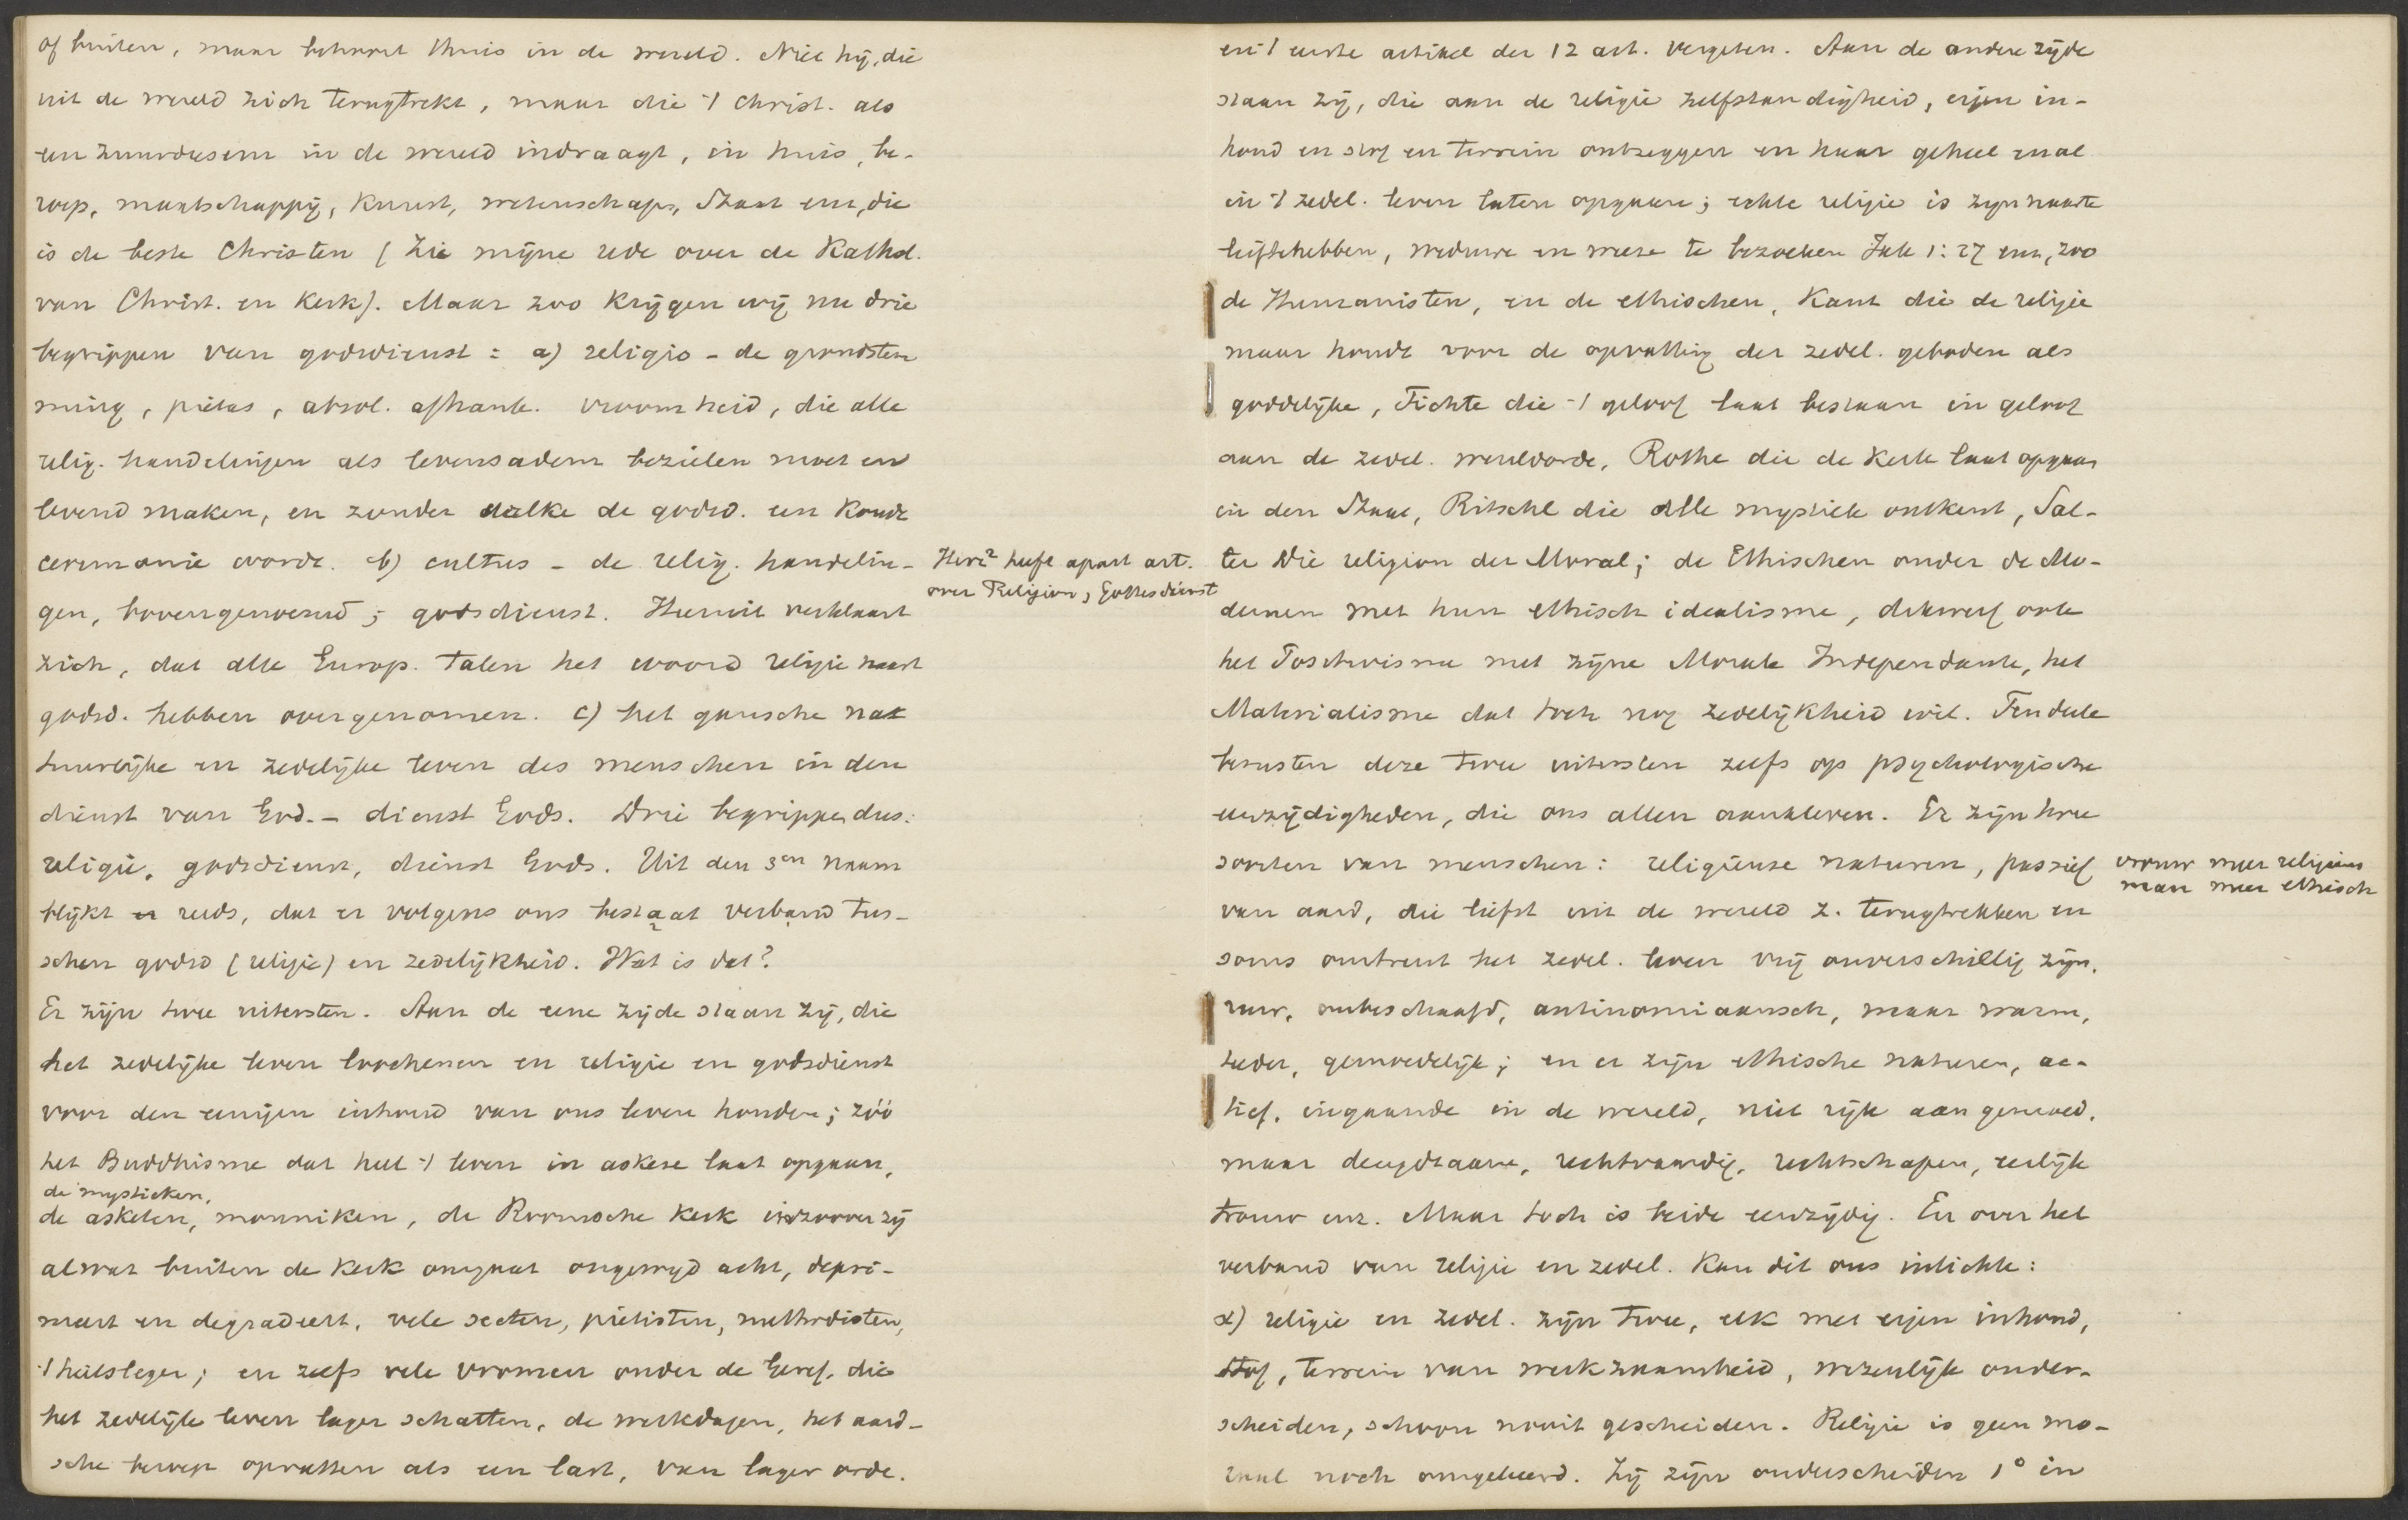 of buiten, maar behoort thuis in de wereld. Niet hij, die
uit de wereld zich terugtrekt, maar die 't Christ. als
een zuurdeesem in de wereld indraagt, in huis, be-
roep, maatschappij, kunst, wetenschap, Staat enz, die
is de beste Christen (Zie mijne rede over de Kathol.
van Christ. en Kerk). Maar zoo krijgen wij nu drie
begrippen van godsdienst: a) religio - de grondstem
ming, pietas, absol. afhank. vroomheid, die alle
relig. handelingen als levensadem bezielen moet en
levend maken, en zonder welke de godsd. een koude
ceremonie wordt. b) cultus - de relig. handelin-
gen, bovengenoemd; godsdienst. Hieruit verklaart
zich, dat alle Europ. talen het woord religie naast
godsd. hebben overgenomen. c) het gansche na
tuurlijke en zedelijke leven des menschen in den
dienst van God. - dienst Gods. Drie begrippen dus:
religie, godsdienst, dienst Gods. Uit den 3en naam
blijkt reeds, dat er volgens ons bestaat verband tus-
schen godsd (religie) en zedelijkheid. Wat is dat?
Er zijn twee uitersten. Aan de eene zijde staan zij, die
het zedelijke leven loochenen en religie en godsdienst
voor den eenigen inhoud van ons leven houden; zóó
het Buddhisme dat heel 't leven in askese laat opgaan,
de mystieken,
de asketen, monniken, de Roomsche kerk inzoover zij
alwat buiten de kerk omgaat ongewijd acht, depri-
meert en degradeert, vele secten, piëtisten, methodisten,
't heilsleger; en zelfs vele vromen onder de Geref. die
het zedelijk leven lager schatten, de werkdagen, het aard-
sche beroep opvatten als een last, van lager orde.
Herz² heeft apart art.
over Religion, Gottesdienst
en 't eerste artikel der 12 art. vergeten. Aan de andere zijde
staan zij, die aan de religie zelfstandigheid, eigen in-
houd en stof en terrein ontzeggen en haar geheel en al
in 't zedel. leven laten opgaan; echte religie is zijn naaste
liefhebben, weduwe en weeze te bezoeken Jak 1:27 enz, zoo
de Humanisten, en de ethischen, Kant die de religie
maar houdt voor de opvatting der zedel. geboden als
goddelijke, Fichte die 't geloof laat bestaan in geloof
aan de zedel. wereldorde, Rothe die de Kerk laat opgaan
in den Staat, Ritschl die alle mystiek ontkent, Sal-
ter Die religion der Moral; de Ethischen onder de Mo-
dernen met hun ethisch idealisme, dikwerf ook
het Positivisme met zijne Morale Indépendante, het
Materialisme dat toch nog zedelijkheid wil. Ten deele
berusten deze twee uitersten zelfs op psychologische
eenzijdigheden, die ons allen aankleven. Er zijn twee
soorten van menschen: religieuse naturen, passief
van aard, die liefst uit de wereld z. terugtrekken en
soms omtrent het zedel. leven vrij onverschillig zijn,
ruw, onbeschaafd, antinomiaansch, maar warm,
teeder, gemoedelijk; en er zijn ethische naturen, ac-
tief, ingaande in de wereld, niet rijk aan gemoed,
maar deugdzaam, rechtvaardig, rechtschapen, eerlijk
trouw enz. Maar toch is beide eenzijdig. En over het
verband van religie en zedel. kan dit ons inlichten:
α) religie en zedel. zijn twee, elk met eigen inhoud,
stof, terrein van werkzaamheid, wezenlijk onder-
scheiden, schoon nooit gescheiden. Religie is geen mo-
raal noch omgekeerd. Zij zijn onderscheiden 1° in
vrouw meer religieus
man meer ethisch